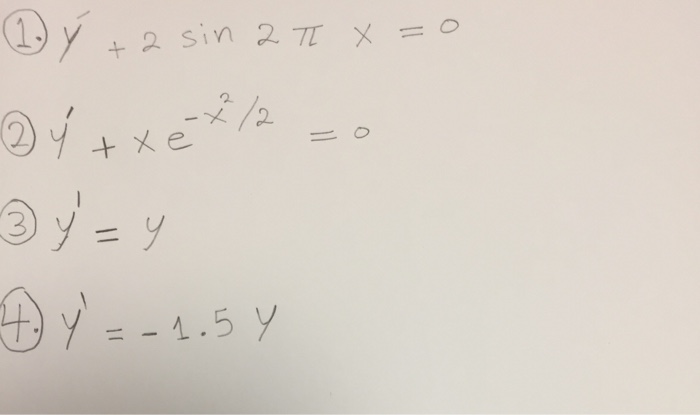 ①. y' + 2 sin 2 π x = 0
② y' + x e^{-x²/2} = 0
③ y' = y
④. y' = -1.5 y